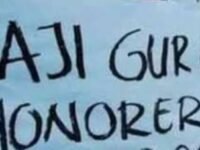 AJI GUR
HONORER